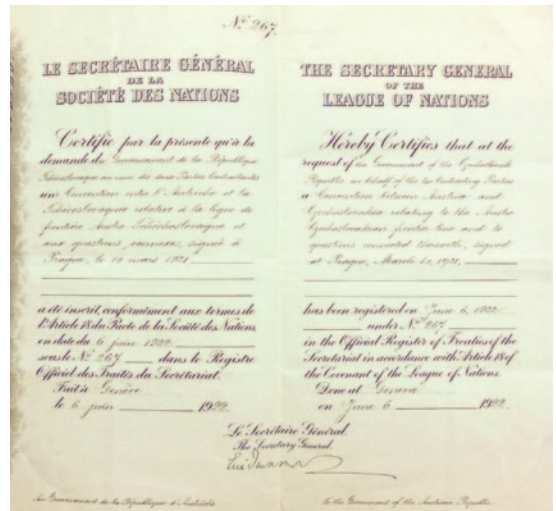 No 267
LE SECRÉTAIRE GÉNÉRAL
DE LA
SOCIÉTÉ DES NATIONS
Certifie par la présente qu'à la
demande du Gouvernement de la République
Tchécoslovaque au nom des deux Parties Contractantes
une Convention entre l'Autriche et la
Tchécoslovaquie relative à la ligne de
frontière Austro Tchécoslovaque et
aux questions connexes, signée à
Prague, le 10 mars 1921
a été inscrit, conformément aux termes de
l'Article 18 du Pacte de la Société des Nations,
en date du 6 juin 1922
sous le No 267 dans le Registre
Officiel des Traités du Secrétariat.
Fait à Genève
le 6 juin 1922.
THE SECRETARY GENERAL
OF THE
LEAGUE OF NATIONS
Hereby Certifies that at the
request of the Government of the Czechoslovak
Republic on behalf of the two Contracting Parties
a Convention between Austria and
Czechoslovakia relating to the Austro
Czechoslovakian frontier line and to
questions connected therewith, signed
at Prague, March 10, 1921,
has been registered on June 6, 1922
under No 267
in the Official Register of Treaties of the
Secretariat in accordance with Article 18 of
the Covenant of the League of Nations.
Done at Geneva
on June 6 1922.
Le Secrétaire Général.
The Secretary General.
Au Gouvernement de la République d'Autriche
To the Government of the Austrian Republic